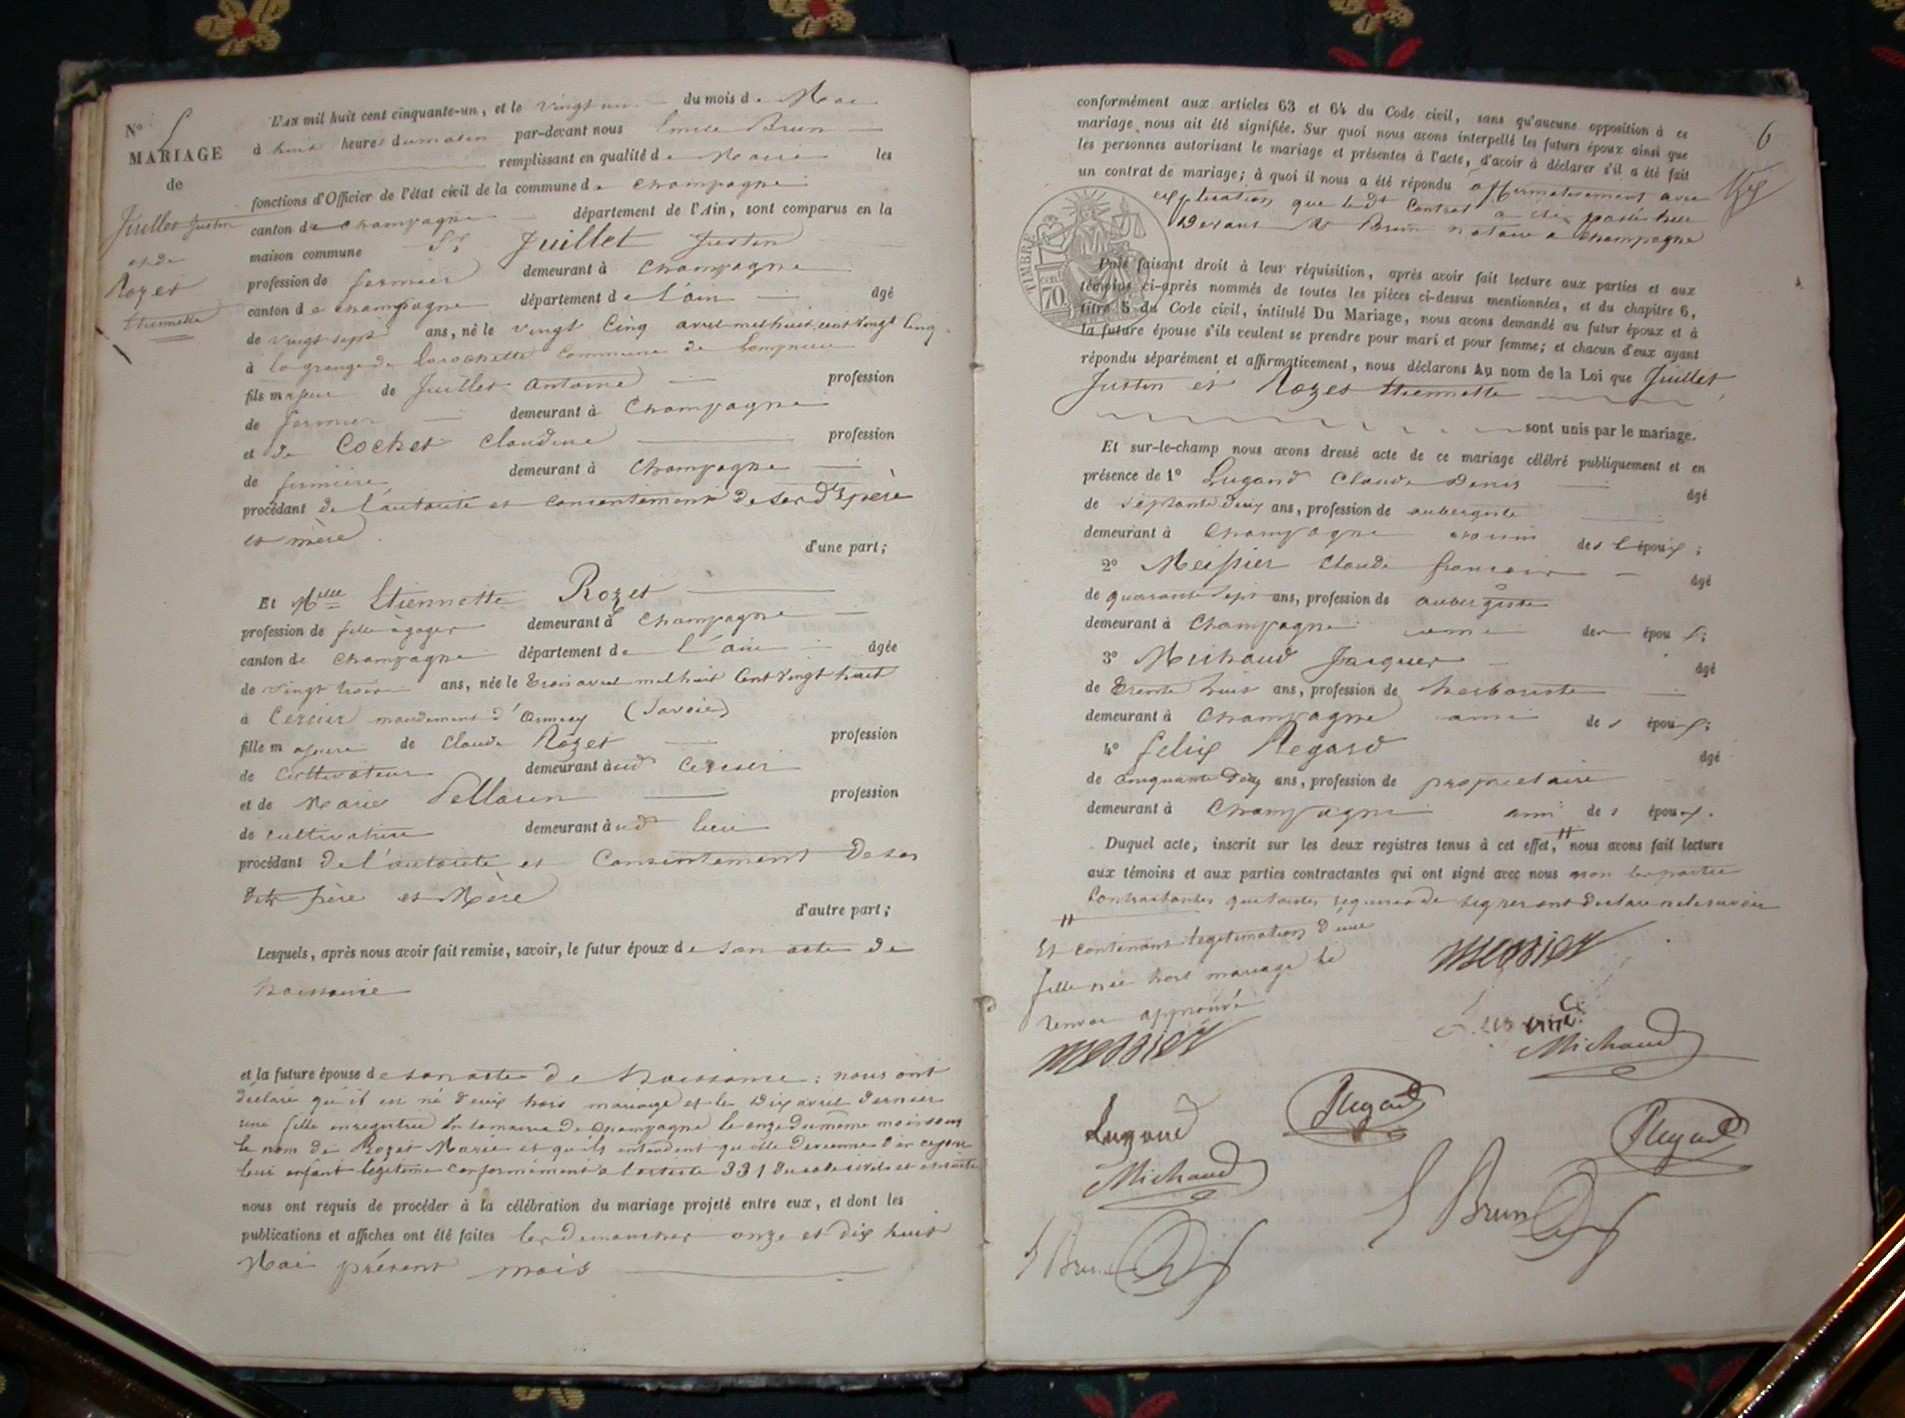 N° 5
MARIAGE
de
Juillet Justin
et de
Rozet
Etiennette
L'AN mil huit cent cinquante-un, et le vingt un du mois de Mai
à huit heures du matin par-devant nous Emile Brun
remplissant en qualité de Maire les
fonctions d'Officier de l'état civil de la commune de Champagne
canton de Champagne département de l'Ain, sont comparus en la
maison commune Sr Juillet Justin
profession de fermier demeurant à Champagne
canton de Champagne département de l'ain âgé
de vingt sept ans, né le vingt Cinq avril mil huit cent vingt Cinq
à la grange de Larochette Commune de
fils majeur de Juillet Antoine profession
de fermier demeurant à Champagne
et de Cochet Claudine profession
de fermière demeurant à Champagne
procédant de l'autorité et Consentement de ses dts père
et mère
d'une part;
Et Melle Etiennette Rozet
profession de fille à gages demeurant à Champagne
canton de Champagne département de l'ain âgée
de vingt trois ans, née le trois avril mil huit Cent vingt huit
à Cercier mandement d'Annecy (Savoie)
fille majeure de Claude Rozet profession
de Cultivateur demeurant à ud Cercier
et de Marie Pellarin profession
de cultivatrice demeurant à ud lieu
procédant de l'autorité et Consentement de ses
dits père et Mère
d'autre part;
Lesquels, après nous avoir fait remise, savoir, le futur époux de son acte de
Naissance
et la future épouse de son acte de Naissance; nous ont
déclaré qu'il est né d'eux hors mariage et le dix avril dernier
une fille enregistrée à la mairie de Champagne le onze du même mois sous
le nom de Rozet Marie et qu'ils entendent qu'elle devienne dès ce jour
leur enfant légitime conformément à l'article 331 du code civil et ensuite
nous ont requis de procéder à la célébration du mariage projeté entre eux, et dont les
publications et affiches ont été faites les dimanches onze et dix huit
Mai présent mois
6
conformément aux articles 63 et 64 du Code civil, sans qu'aucune opposition à ce
mariage nous ait été signifiée. Sur quoi nous avons interpellé les futurs époux ainsi que
les personnes autorisant le mariage et présentes à l'acte, d'avoir à déclarer s'il a été fait
un contrat de mariage; à quoi il nous a été répondu affirmativement avec
explication que ledt Contrat a été passé
devant Me Brun notaire à Champagne
TIMBRE
70
Puis faisant droit à leur réquisition, après avoir fait lecture aux parties et aux
témoins ci-après nommés de toutes les pièces ci-dessus mentionnées, et du chapitre 6,
titre 5 du Code civil, intitulé Du Mariage, nous avons demandé au futur époux et à
la future épouse s'ils veulent se prendre pour mari et pour femme; et chacun d'eux ayant
répondu séparément et affirmativement, nous déclarons Au nom de la Loi que Juillet
Justin et Rozet Etiennette
sont unis par le mariage.
Et sur-le-champ nous avons dressé acte de ce mariage célébré publiquement et en
présence de 1° Lugand Claude Denis âgé
de septante deux ans, profession de aubergiste
demeurant à Champagne voisin des époux;
2° Messier Claude françois âgé
de quarante sept ans, profession de aubergiste
demeurant à Champagne ami des époux;
3° Michaud Jacques âgé
de trente huit ans, profession de herboriste
demeurant à Champagne ami des époux;
4° felix Regard âgé
de Cinquante deux ans, profession de propriétaire
demeurant à Champagne ami des époux.
Duquel acte, inscrit sur les deux registres tenus à cet effet, nous avons fait lecture
aux témoins et aux parties contractantes qui ont signé avec nous non les parties
Contractantes qui toutes requises de signer ont déclaré ne le savoir
Et contenant légitimation d'une
fille née hors mariage le
renvoi approuvé
messier
messier
Michaud
Lugand
Regard
Regard
Michaud
E Brun
E Brun